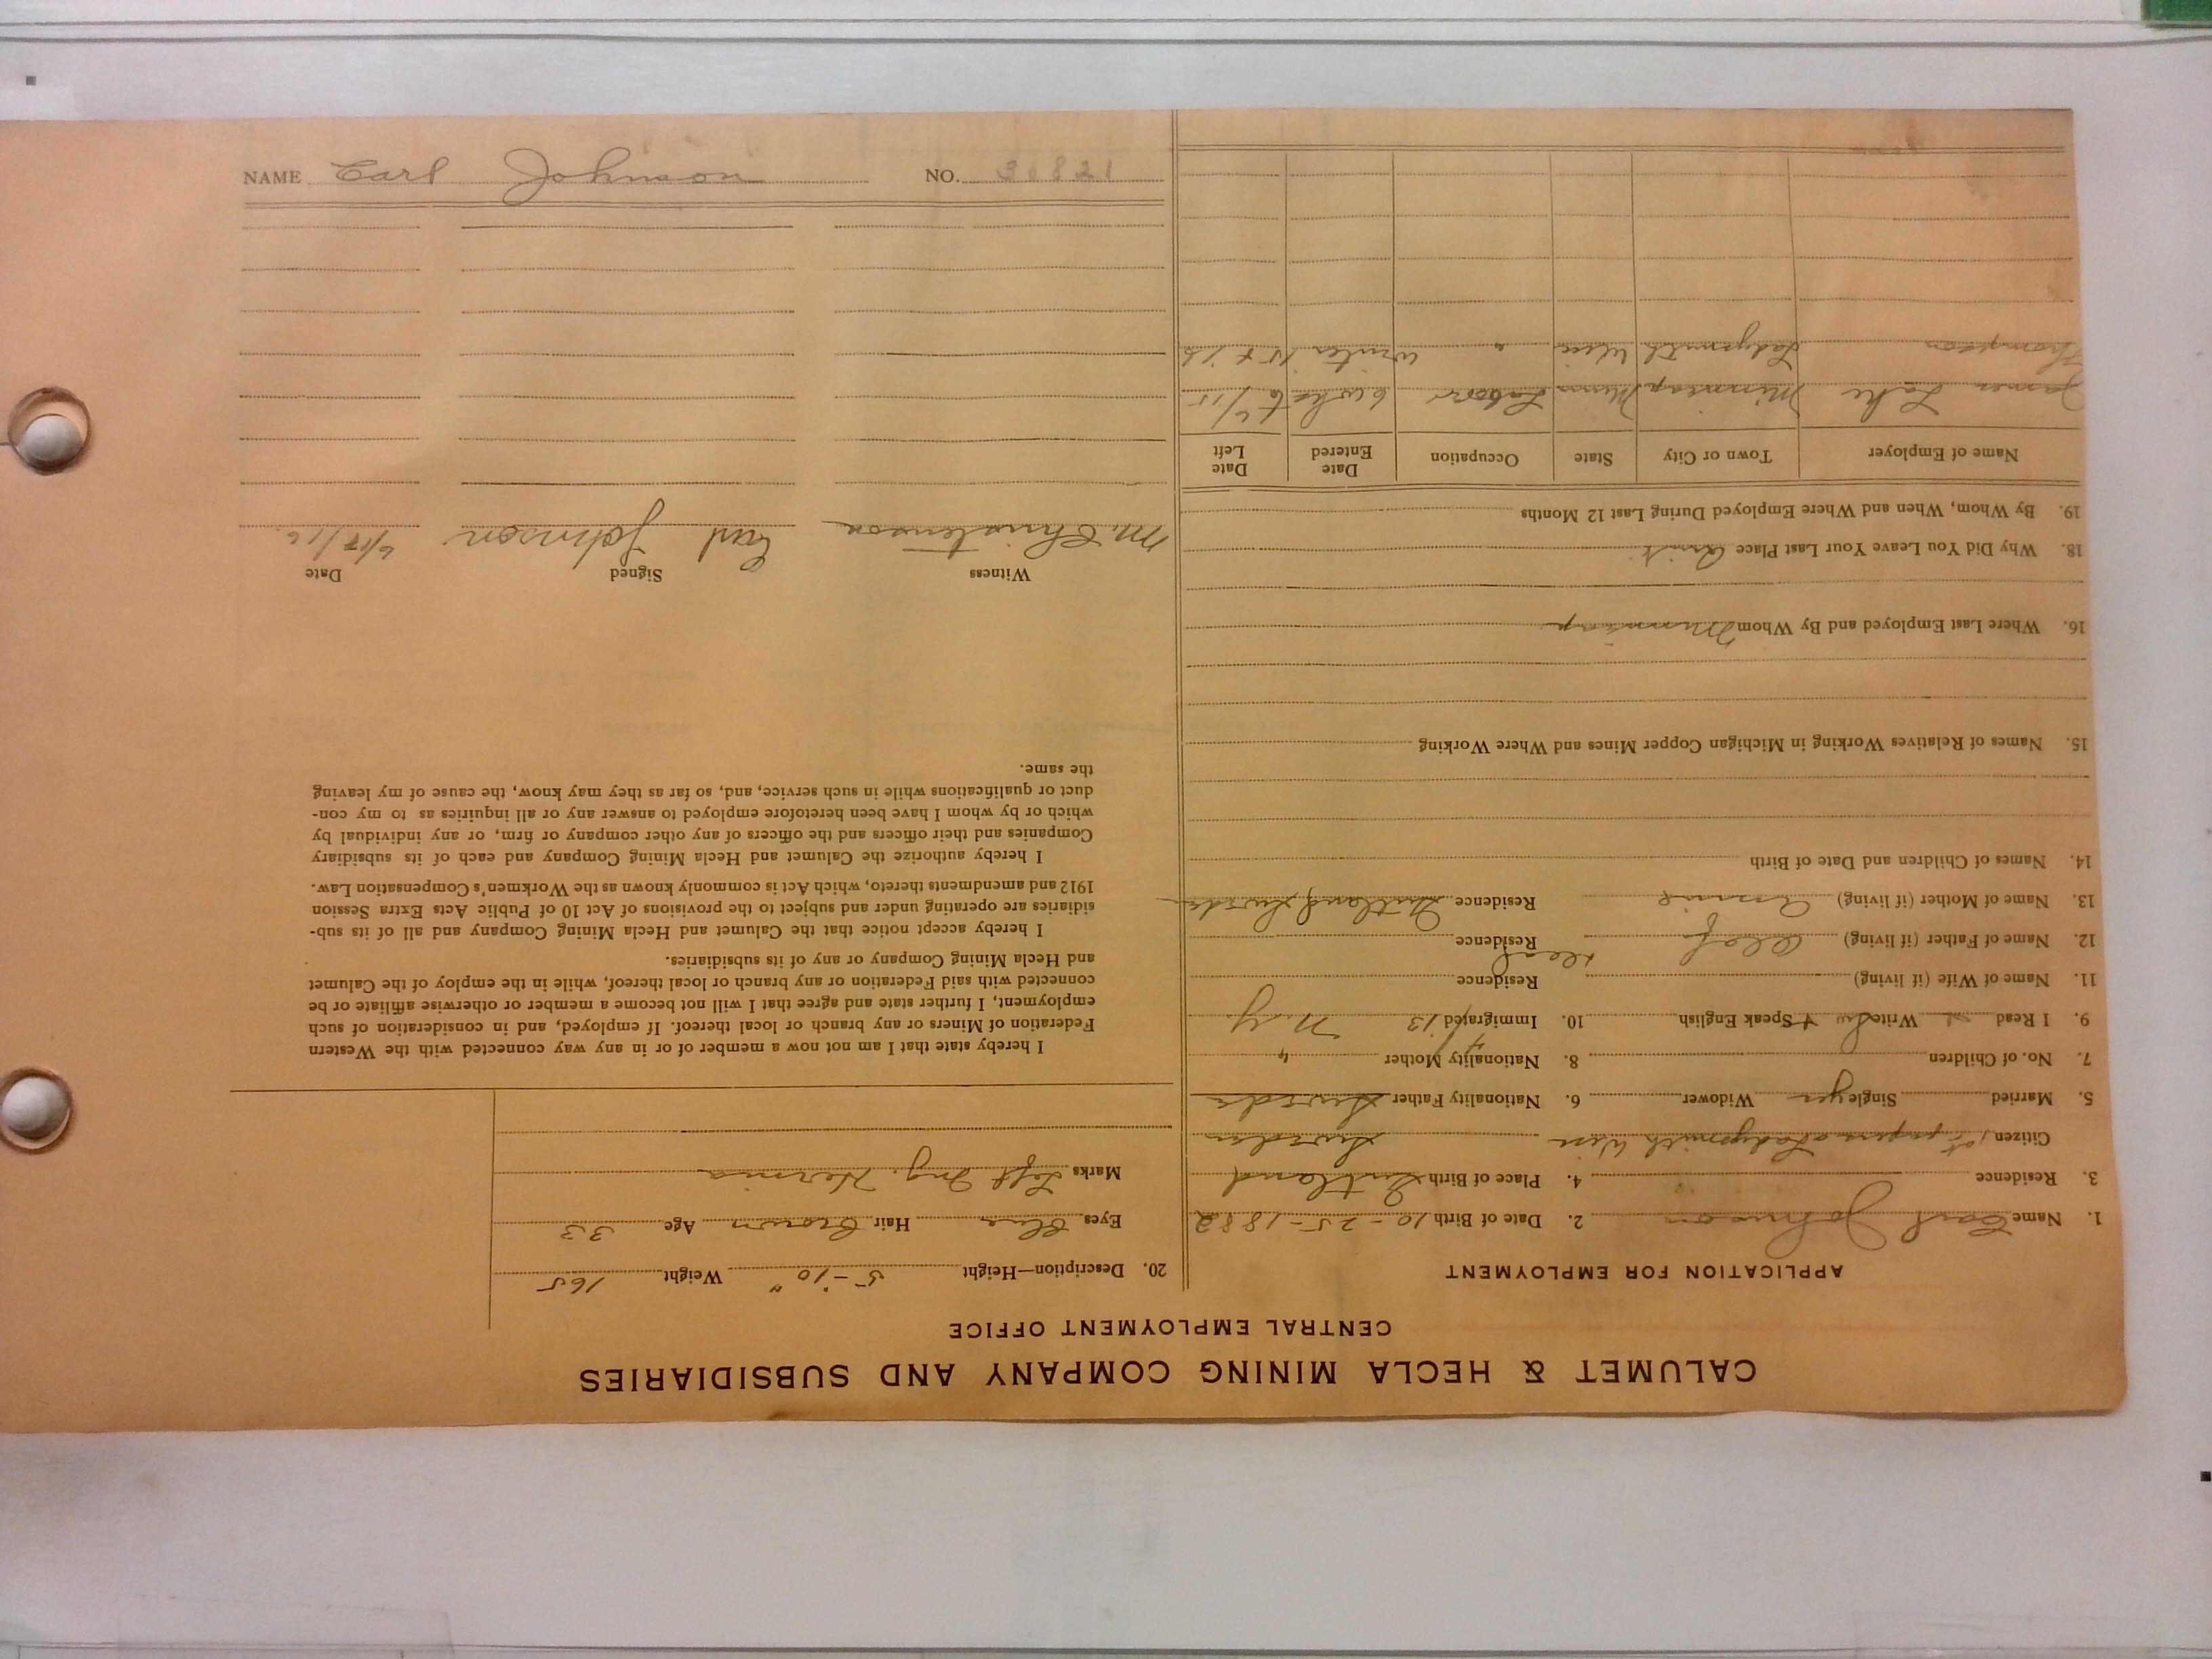 CALUMET & HECLA MINING COMPANY AND SUBSIDIARIES
CENTRAL EMPLOYMENT OFFICE
APPLICATION FOR EMPLOYMENT
1. Name Carl Johnson 2. Date of Birth 10-25-1882
3. Residence 4. Place of Birth
Citizen 1st papers Ladysmith Wis Sweden
5. Married Single yes Widower 6. Nationality Father Swede
7. No. of Children 8. Nationality Mother "
9. I Read Write Speak English 10. Immigrated N.Y.
11. Name of Wife (if living) Residence
12. Name of Father (if living) Olof Residence dead
13. Name of Mother (if living) Annie Residence Sweden
14. Names of Children and Date of Birth
15. Names of Relatives Working in Michigan Copper Mines and Where Working
16. Where Last Employed and By Whom
18. Why Did You Leave Your Last Place Quit
19. By Whom, When and Where Employed During Last 12 Months
Name of Employer Town or City State Occupation Date Entered Date Left
James Lake Minneap Minn Labor
Thompson Ladysmith Wis " Winter 15 + 16
20. Description—Height 5-10" Weight 165
Eyes Blue Hair Brown Age 33
Marks Left Ing. Hernia
I hereby state that I am not now a member of or in any way connected with the Western
Federation of Miners or any branch or local thereof. If employed, and in consideration of such
employment, I further state and agree that I will not become a member or otherwise affiliate or be
connected with said Federation or any branch or local thereof, while in the employ of the Calumet
and Hecla Mining Company or any of its subsidiaries.
I hereby accept notice that the Calumet and Hecla Mining Company and all of its sub-
sidiaries are operating under and subject to the provisions of Act 10 of Public Acts Extra Session
1912 and amendments thereto, which Act is commonly known as the Workmen's Compensation Law.
I hereby authorize the Calumet and Hecla Mining Company and each of its subsidiary
Companies and their officers and the officers of any other company or firm, or any individual by
which or by whom I have been heretofore employed to answer any or all inquiries as to my con-
duct or qualifications while in such service, and, so far as they may know, the cause of my leaving
the same.
Witness Signed Date
M. Christenson Carl Johnson 6/17/16
NAME Carl Johnson NO. 30821